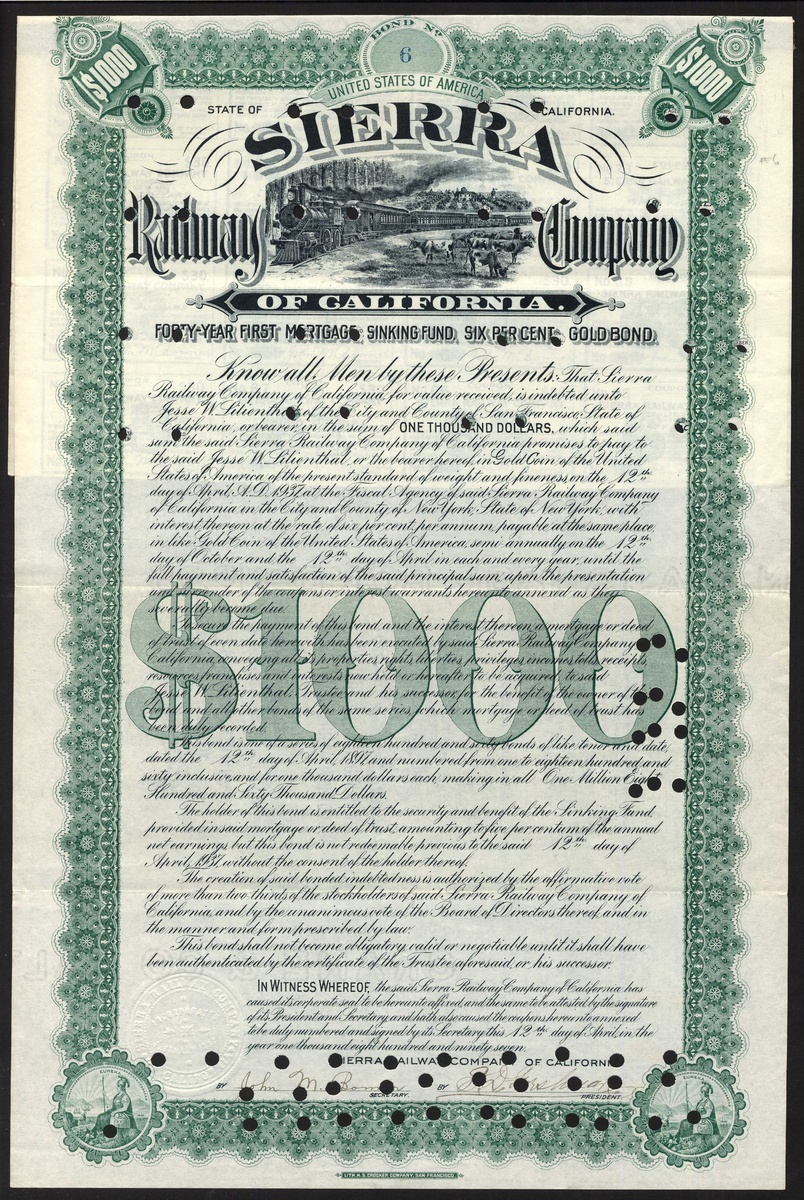 BOND No.
6
$1000
$1000
UNITED STATES OF AMERICA
STATE OF CALIFORNIA.
SIERRA
Railway Company
OF CALIFORNIA.
FORTY-YEAR FIRST MORTGAGE SINKING FUND, SIX PER CENT. GOLD BOND.
Know all Men by these Presents: That Sierra
Railway Company of California, for value received, is indebted unto
Jesse W. Lilienthal, of the City and County of San Francisco, State of
California, or bearer, in the sum of ONE THOUSAND DOLLARS, which said
sum the said Sierra Railway Company of California, promises to pay to
the said Jesse W. Lilienthal, or the bearer hereof, in Gold Coin of the United
States of America of the present standard of weight and fineness on the 12th
day of April, A.D. 1937, at the Fiscal Agency of said Sierra Railway Company
of California in the City and County of New York, State of New York, with
interest thereon at the rate of six per cent. per annum, payable at the same place,
in like Gold Coin of the United States of America, semi-annually on the 12th
day of October and the 12th day of April in each and every year, until the
full payment and satisfaction of the said principal sum, upon the presentation
and surrender of the coupons or interest warrants hereunto annexed as they
severally become due.
To secure the payment of this bond and the interest thereon, a mortgage or deed
of trust of even date herewith has been executed by said Sierra Railway Company of
California, conveying all its properties, rights, liberties, privileges, incomes, tolls, receipts,
resources, franchises and interests now held or hereafter to be acquired, to said
Jesse W. Lilienthal, Trustee and his successor, for the benefit of the owner of this
bond and all other bonds of the same series, which mortgage or deed of trust has
been duly recorded.
$1000
This bond is one of a series of eighteen hundred and sixty bonds of like tenor and date,
dated the 12th day of April, 1897, and numbered from one to eighteen hundred and
sixty inclusive, and for one thousand dollars each, making in all One Million Eight
Hundred and Sixty Thousand Dollars.
The holder of this bond is entitled to the security and benefit of the Sinking Fund
provided in said mortgage or deed of trust, amounting to five per centum of the annual
net earnings but this bond is not redeemable previous to the said 12th day of
April, 1937, without the consent of the holder thereof.
The creation of said bonded indebtedness is authorized by the affirmative vote
of more than two thirds of the stockholders of said Sierra Railway Company of
California, and by the unanimous vote of the Board of Directors thereof, and in
the manner and form prescribed by law.
This bond shall not become obligatory, valid or negotiable until it shall have
been authenticated by the certificate of the Trustee aforesaid, or his successor.
IN WITNESS WHEREOF, the said Sierra Railway Company of California has
caused its corporate seal to be hereunto affixed, and the same to be attested by the signature
of its President and Secretary, and hath also caused the coupons hereinto annexed
to be duly numbered and signed by its Secretary this 12th day of April, in the
year one thousand eight hundred and ninety seven.
SIERRA RAILWAY COMPANY OF CALIFORNIA
BY John M. SECRETARY. BY PRESIDENT.
EUREKA
EUREKA
LITH. H.S. CROCKER COMPANY, SAN FRANCISCO